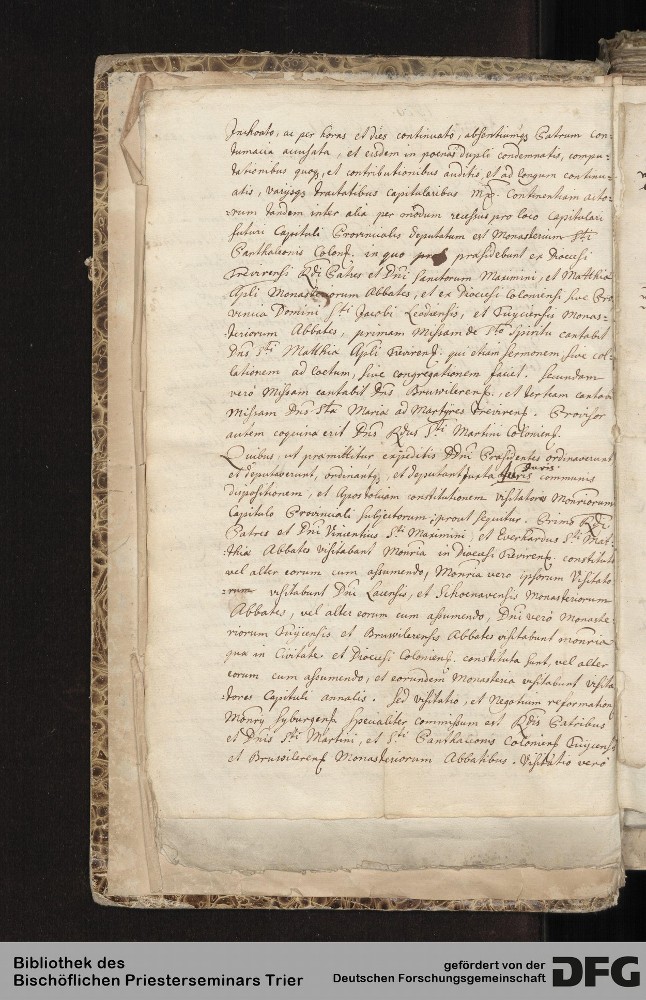 Inchoato, ac per horas et dies continuato, absentiumq3 Patrum con=
tumacia accusata, et eisdem in poenas dupli condemnatis, compu=
tationibus quoq3, et contributionibus auditis, et ad longum continu=
atis, varysq3 tractatibus capitularibus continentiam acto=
rum tandem inter alia per modum recessus pro loco Capitulari
futuri Capituli Provincialis deputatum est Monasterium Sti
Panthaleonis Coloniens. in quo præsidebunt ex Dioecesi
Trevirensi Rdi Patres et Dni Sanctorum Maximini, et Matthiæ
Apli Monasteriorum Abbates, et ex Dioecesi Coloniensi sive Pro=
vincia Domini Sti Jacobi Leodiensis, et Tuyciensis Monas=
teriorum Abbates, primam Missam de Sto Spiritu cantabit
Dns Sti Matthiæ Apli Trevirens. qui etiam sermonem sive col=
lationem ad coetum, sive congregationem faciet. Secundam
verò Missam cantabit Dns Bruwilerens., et tertiam cantabit
Missam Dns Sta Mariæ ad Martÿres Trevirens. Provisor
autem coquinæ erit Dns Rdus Sti Martini Coloniens.
Quibus, ut præmittitur expeditis DDni Præsidentes ordinaverunt
et deputaverunt, ordinantq3, et deputant juxta Juris communis
dispositionem, et Apostolicam constitutionem visitatores Monriorum
Capitulo Provinciali subjectorum, prout sequitur. Primò Rdi
Patres et Dni Vincentius Sti Maximini, et Everhardus Sti Mat=
thiæ Abbates visitabunt Monria in Dioecesi Trevirens. constituta
vel alter eorum cum assumendo, Monria vero ipsorum Visitato
=rum visitabunt Dni Lacensis, et Schoenavensis Monasteriorum
Abbates, vel alter eorum cum assumendo, Dni verò Monaste
riorum Tuyciensis et Bruwilerensis Abbates visitabunt monria
quæ in Civitate et Dioecesi Coloniens. constituta sunt, vel alter
eorum cum assumendo, et eorundem Monasteria visitabunt visita
=tores Capituli annalis. Sed visitatio, et Negotium reformationis
Monry Syburgens. specialiter commissum est Rdis Patribus
et Dnis Sti Martini, et Sti Panthaleonis Coloniens. Tuyciens.
et Bruwilerens. Monasteriorum Abbatibus. Visitatio verò
Bibliothek des
Bischöflichen Priesterseminars Trier
gefördert von der
Deutschen Forschungsgemeinschaft
DFG